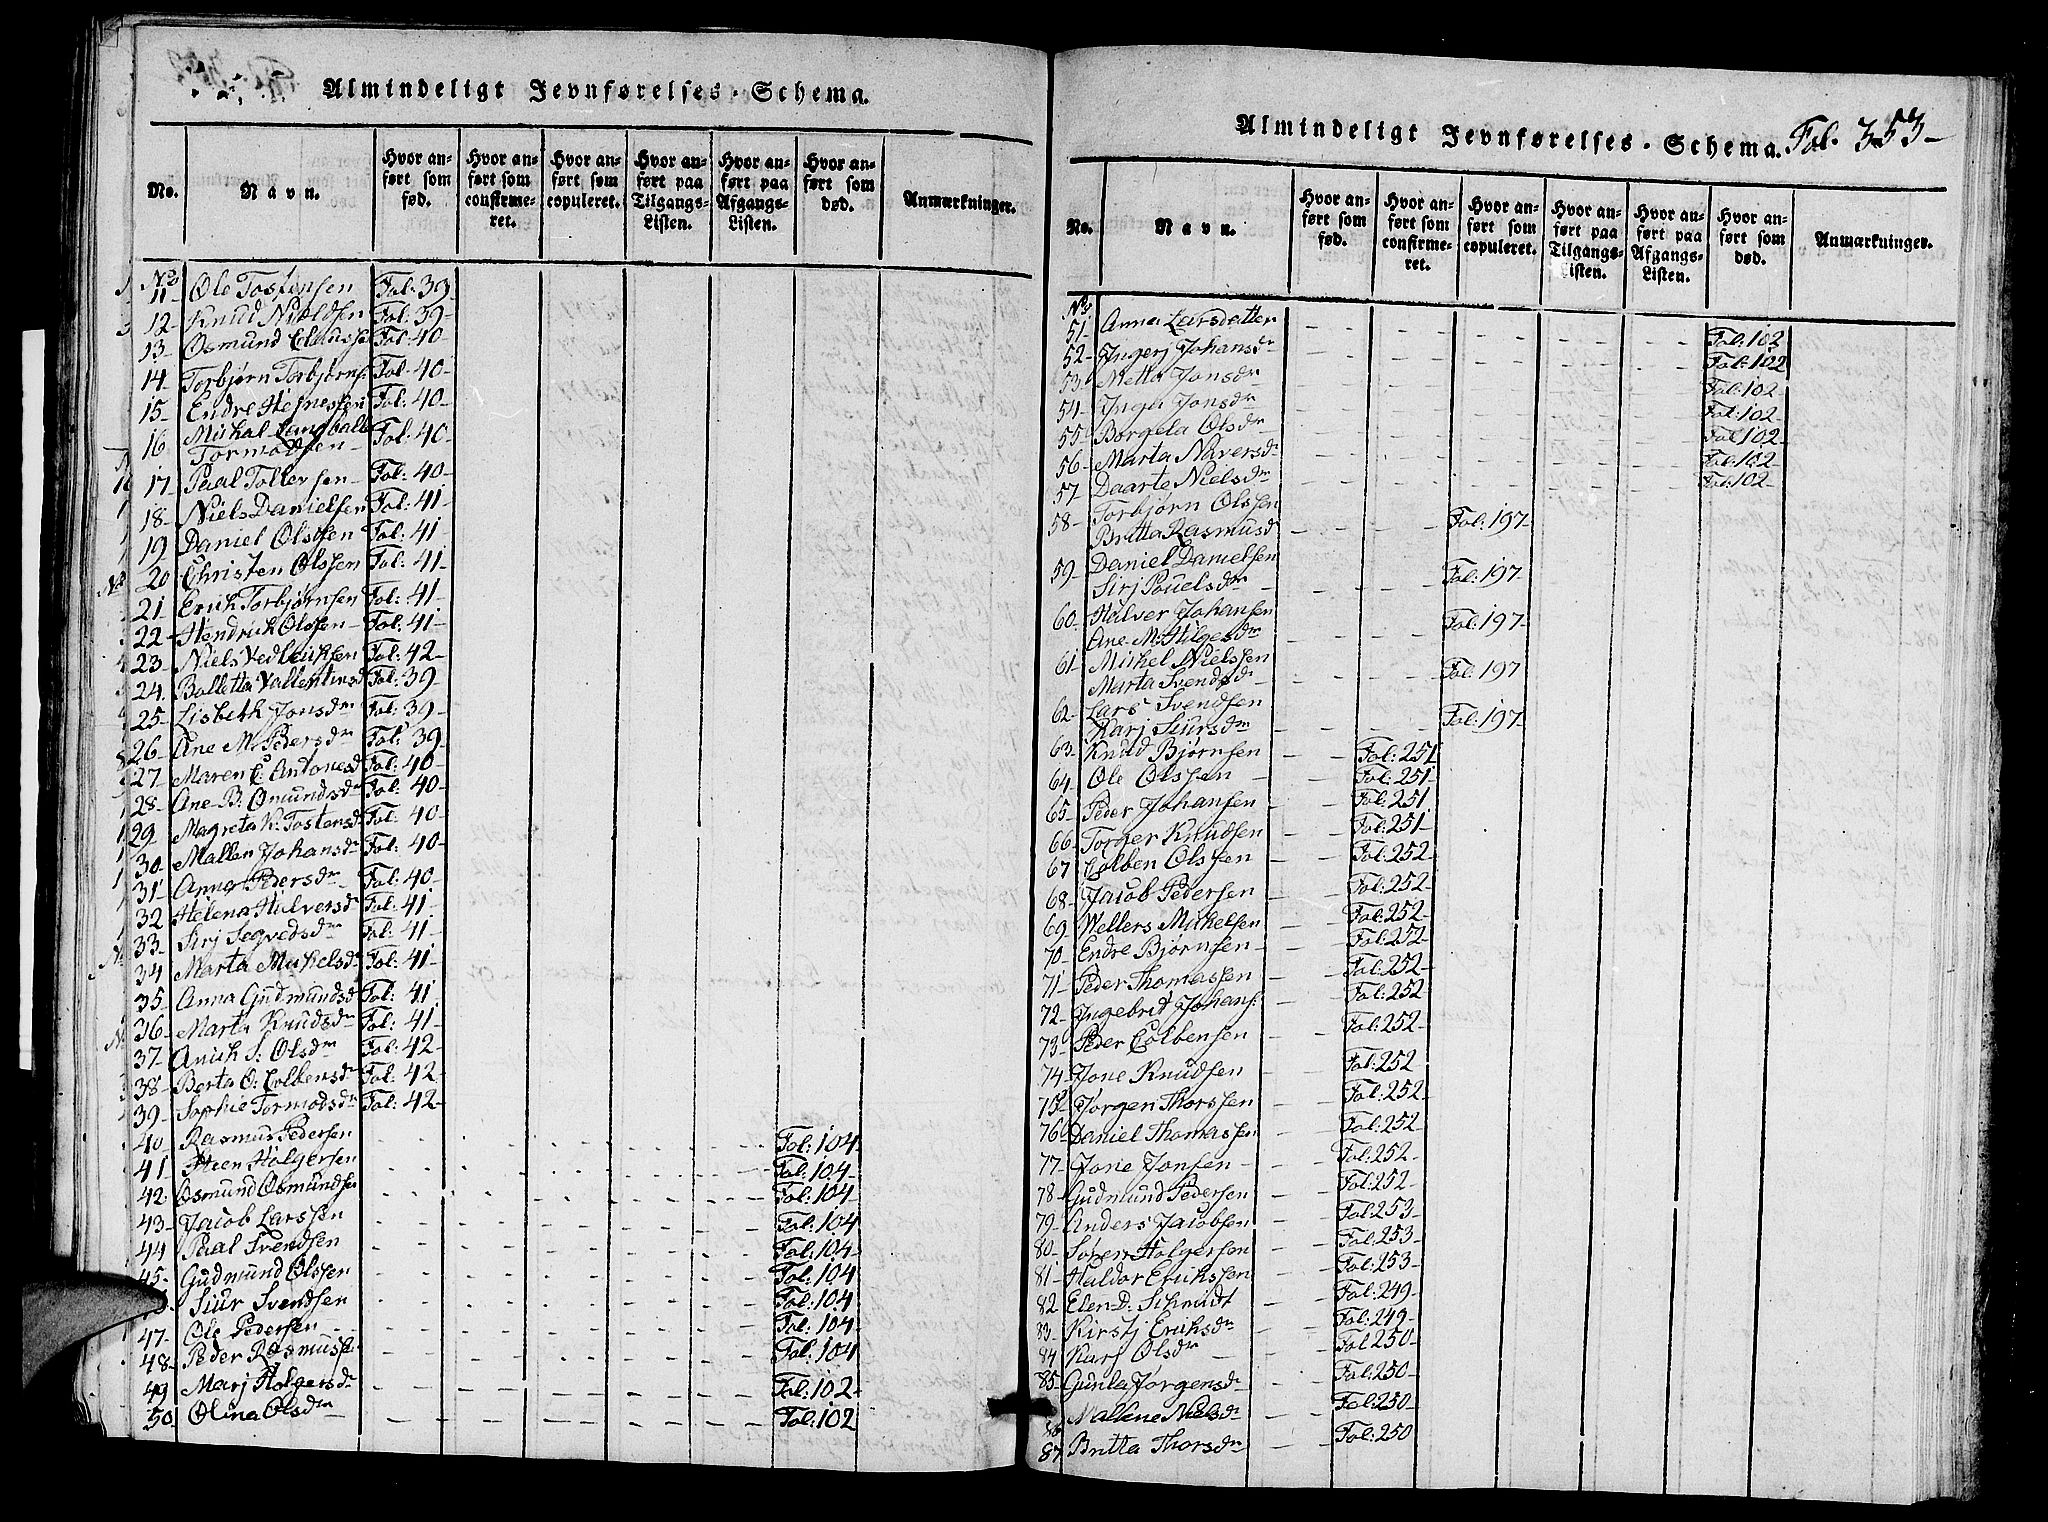 Almindeligt Jevnførelses-Schema.
No.
Navn.
Hvor an-ført som fød.
Hvor an-ført som confirme-ret.
Hvor an-ført som copuleret.
Hvor an-ført paa Tilgangs-Listen.
Hvor an-ført paa Afgangs-Listen.
Hvor an-ført som død.
Anmærkninger.
No
11 Ole Tostensen Fol: 39
12 Knud Nieldsen Fol: 39
13 Osmund Clauss Fol: 40
14 Torbjørn Torbjørns: Fol: 40
15 Endre Fol: 40
16 Mickal Fol: 40
Tormodsen
17 Paal Tollersen Fol: 40
18 Niels Danielsen Fol: 41
19 Daniel Olssen Fol: 41
20 Christen Olssen Fol: 41
21 Erich Torbjørnsen Fol: 41
22 Hendrich Olssen Fol: 41
23 Niels Fol: 42
24 Balletta Vallentinsd Fol: 39
25 Lisbeth Jonsdr Fol: 39
26 Ane M: Pedersdr Fol: 39
27 Maren C: Antonesd Fol: 40
28 Ane B. Omundsdr Fol: 40
29 Magreta K: Tostensd Fol: 40
30 Mallen Johansdr Fol: 40
31 Anna Pedersdr Fol: 40
32 Helena Halversdr Fol: 41
33 Sirj Segvedsdr Fol: 41
34 Marta Mickelsdr Fol: 41
35 Anna Gudmundsd Fol: 41
36 Marta Knudsdr Fol: 41
37 Anich S: Olsdr Fol: 42
38 Berta O: Colbensdr Fol: 42
39 Sophie Tormodsdr Fol: 42
40 Rasmus Pedersen Fol: 104
41 Steen Holgersen Fol: 104
42 Osmund Osmundsen Fol: 104
43 Jacob Larssen Fol: 104
44 Paal Svendsen Fol: 104
45 Gudmund Olssen Fol: 104
Siur Svendsen Fol: 104
47 Ole Pedersen Fol: 104
48 Peder Rasmussen Fol: 104
49 Marj Holgersdr Fol: 102
50 Olina Olsdr Fol: 102
Almindeligt Jevnførelses-Schema. Fol. 353
No.
Navn.
Hvor an-ført som fød.
Hvor an-ført som confirme-ret.
Hvor an-ført som copuleret.
Hvor an-ført paa Tilgangs-Listen.
Hvor an-ført paa Afgangs-Listen.
Hvor an-ført som død.
Anmærkninger.
No
51 Anna Larsdatter Fol: 102
52 Ingerj Johansdr Fol: 102
53 Metta Jonsdr Fol: 102
54 Inga Jonsdr Fol: 102
55 Borgela Olsdr Fol: 102
56 Marta Naversdr Fol: 102
57 Daarte Nielsdr Fol: 102
58 Torbjørn Olssen
Britta Rasmusd Fol: 197
59 Daniel Danielsen
Sirj Pouelsdr Fol: 197
60 Halver Johansen
Ane M: Hilgesdr Fol: 197
61 Mickel Nielssen
Marta Svendsdr Fol: 197
62 Lars Svendsen
Karj Siursdr Fol: 197
63 Knud Bjørnsen Fol: 251
64 Ole Olssen Fol: 251
65 Peder Johansen Fol: 251
66 Torger Knudsen Fol: 251
67 Colben Olssen Fol: 252
68 Jacob Pedersen Fol: 252
69 Wellers Mickelsen Fol: 252
70 Endre Bjørnsen Fol: 252
71 Peder Thomassen Fol: 252
72 Ingebrit Johans: Fol: 252
73 Peder Colbensen Fol: 252
74 Jone Knudsen Fol: 252
75 Jørgen Thorssen Fol: 252
76 Daniel Thomassen Fol: 252
77 Jone Jonsen Fol: 252
78 Gudmund Pedersen Fol: 252
79 Anders Jacobsen Fol: 253
80 Søren Holgersen Fol: 253
81 Haldor Erickssen Fol: 253
82 Elen D: Schmidt Fol: 249
83 Kirstj Ericksdr Fol: 249
84 Karj Olsdr Fol: 250
85 Gunla Jørgensdr Fol: 250
86 Mallene Nielsdr Fol: 250
87 Britta Thorsdr Fol: 250